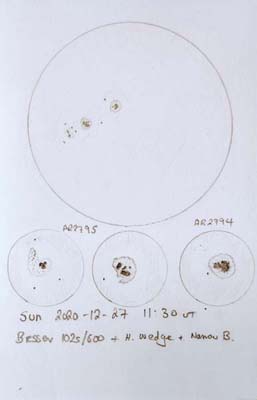 AR2795
AR2794
Sun 2020-12-27 11:30 UT
Bresser 102s/600 + H. Wedge + Narrow B.